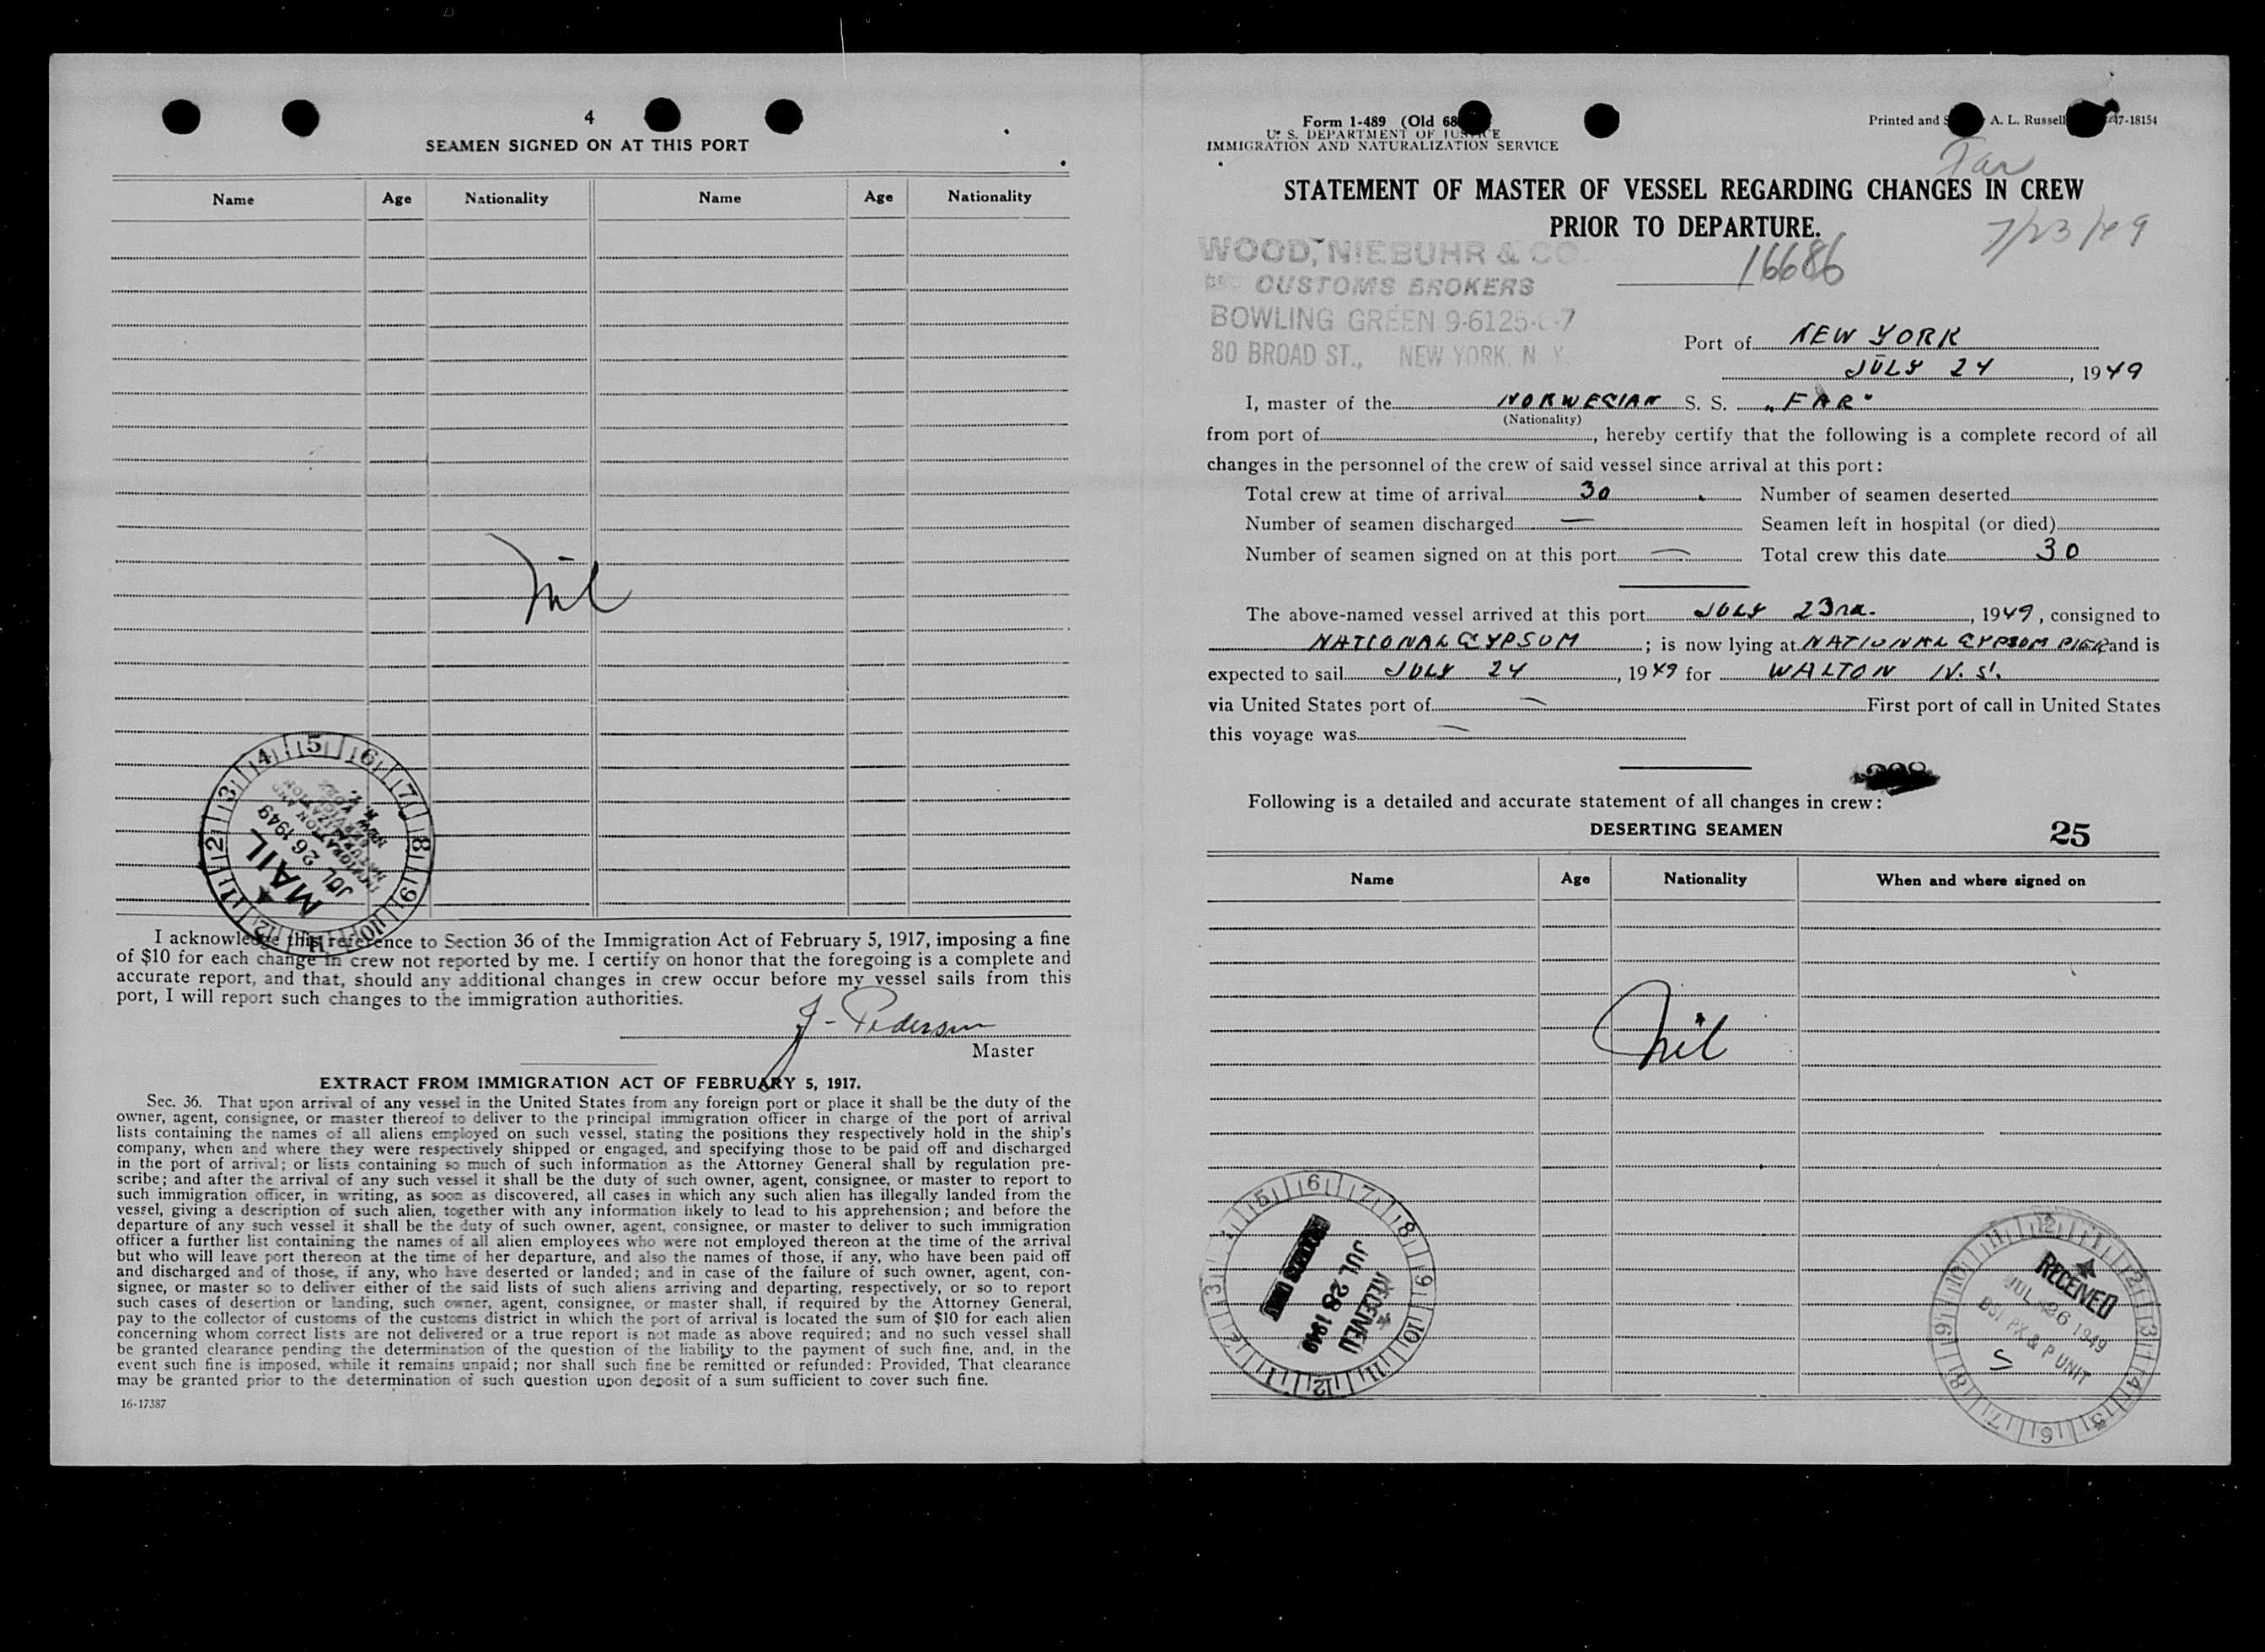 4
SEAMEN SIGNED ON AT THIS PORT
Name Age Nationality Name Age Nationality
Nil
MAIL
JUL 26 1949
IMMIGRATION AND
NATURALIZATION
SERVICE
NEW YORK
N. Y.
I acknowledge this reference to Section 36 of the Immigration Act of February 5, 1917, imposing a fine
of $10 for each change in crew not reported by me. I certify on honor that the foregoing is a complete and
accurate report, and that, should any additional changes in crew occur before my vessel sails from this
port, I will report such changes to the immigration authorities.
J- Pedersen
Master
EXTRACT FROM IMMIGRATION ACT OF FEBRUARY 5, 1917.
Sec. 36. That upon arrival of any vessel in the United States from any foreign port or place it shall be the duty of the
owner, agent, consignee, or master thereof to deliver to the principal immigration officer in charge of the port of arrival
lists containing the names of all aliens employed on such vessel, stating the positions they respectively hold in the ship's
company, when and where they were respectively shipped or engaged, and specifying those to be paid off and discharged
in the port of arrival; or lists containing so much of such information as the Attorney General shall by regulation pre-
scribe; and after the arrival of any such vessel it shall be the duty of such owner, agent, consignee, or master to report to
such immigration officer, in writing, as soon as discovered, all cases in which any such alien has illegally landed from the
vessel, giving a description of such alien, together with any information likely to lead to his apprehension; and before the
departure of any such vessel it shall be the duty of such owner, agent, consignee, or master to deliver to such immigration
officer a further list containing the names of all alien employees who were not employed thereon at the time of the arrival
but who will leave port thereon at the time of her departure, and also the names of those, if any, who have been paid off
and discharged and of those, if any, who have deserted or landed; and in case of the failure of such owner, agent, con-
signee, or master so to deliver either of the said lists of such aliens arriving and departing, respectively, or so to report
such cases of desertion or landing, such owner, agent, consignee, or master shall, if required by the Attorney General,
pay to the collector of customs of the customs district in which the port of arrival is located the sum of $10 for each alien
concerning whom correct lists are not delivered or a true report is not made as above required; and no such vessel shall
be granted clearance pending the determination of the question of the liability to the payment of such fine, and, in the
event such fine is imposed, while it remains unpaid; nor shall such fine be remitted or refunded: Provided, That clearance
may be granted prior to the determination of such question upon deposit of a sum sufficient to cover such fine.
16-17387
Form 1-489 (Old 68
U. S. DEPARTMENT OF JUSTICE
IMMIGRATION AND NATURALIZATION SERVICE
Printed and A. L. Russell 47-18154
Far
STATEMENT OF MASTER OF VESSEL REGARDING CHANGES IN CREW
PRIOR TO DEPARTURE.
7/23/49
WOOD, NIEBUHR & CO.
CUSTOMS BROKERS
BOWLING GREEN 9-6125-6-7
80 BROAD ST., NEW YORK, N. Y.
16686
Port of NEW YORK
JULY 24, 1949
I, master of the NORWEGIAN S. S. "FAR"
(Nationality)
from port of , hereby certify that the following is a complete record of all
changes in the personnel of the crew of said vessel since arrival at this port:
Total crew at time of arrival 30 Number of seamen deserted
Number of seamen discharged — Seamen left in hospital (or died)
Number of seamen signed on at this port — Total crew this date 30
The above-named vessel arrived at this port JULY 23rd. , 1949, consigned to
NATIONAL GYPSUM ; is now lying at NATIONAL GYPSUM PIER and is
expected to sail JULY 24 , 1949 for WALTON N.S.
via United States port of — First port of call in United States
this voyage was —
Following is a detailed and accurate statement of all changes in crew:
DESERTING SEAMEN 25
Name Age Nationality When and where signed on
Nil
RECEIVED
JUL 28 1949
RECEIVED
JUL 26 1949
BSI PX & P UNIT
S